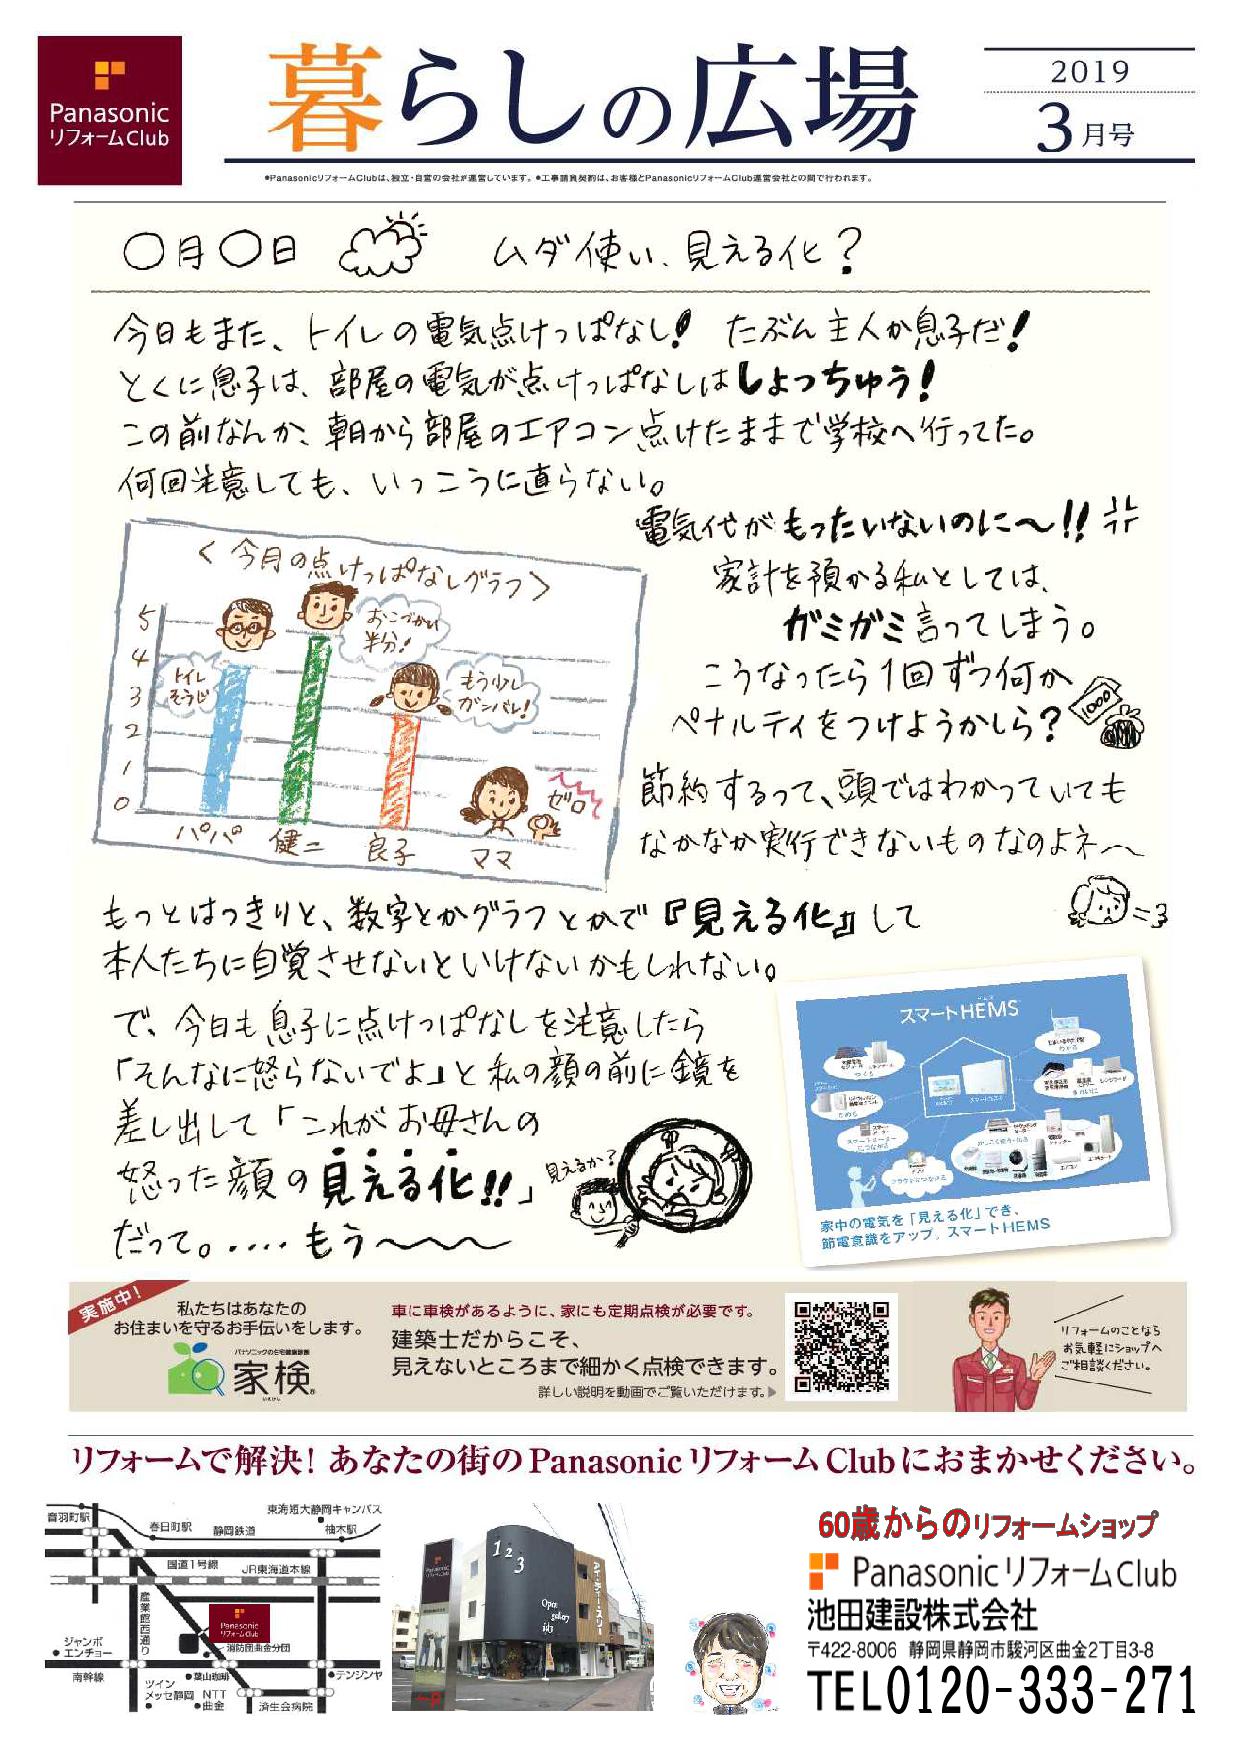 Panasonic
リフォームClub
暮らしの広場
2019
3月号
●PanasonicリフォームClubは、独立・自営の会社が運営しています。●工事請負契約は、お客様とPanasonicリフォームClub運営会社との間で行われます。
○月○日 ムダ使い、見える化？
今日もまた、トイレの電気点けっぱなし！ たぶん主人か息子だ！
とくに息子は、部屋の電気が点けっぱなしはしょっちゅう！
この前なんか、朝から部屋のエアコン点けたままで学校へ行ってた。
何回注意しても、いっこうに直らない。
電気代がもったいないのに〜!!
家計を預かる私としては、
ガミガミ言ってしまう。
こうなったら1回ずつ何か
ペナルティをつけようかしら？
1000
節約するって、頭ではわかっていても
なかなか実行できないものなのよネ〜
＜今月の点けっぱなしグラフ＞
5
4
3
2
1
0
トイレ
そうじ
おこづかい
半分！
もう少し
ガンバレ！
ゼロ
パパ 健二 良子 ママ
もっとはっきりと、数字とかグラフとかで『見える化』して
本人たちに自覚させないといけないかもしれない。
で、今日も息子に点けっぱなしを注意したら
「そんなに怒らないでよ」と私の顔の前に鏡を
差し出して「これがお母さんの
怒った顔の見える化!!」
だって。‥‥もう〜〜〜
見えるか？
スマートHEMS
家中の電気を「見える化」でき、
節電意識をアップ。スマートHEMS
実施中！
私たちはあなたの
お住まいを守るお手伝いをします。
パナソニックの住宅健康診断
家検
いえけん
車に車検があるように、家にも定期点検が必要です。
建築士だからこそ、
見えないところまで細かく点検できます。
詳しい説明を動画でご覧いただけます。▶
リフォームのことなら
お気軽にショップへ
ご相談ください。
リフォームで解決！あなたの街のPanasonicリフォームClubにおまかせください。
音羽町駅
春日町駅
静岡鉄道
東海短大静岡キャンパス
柚木駅
国道1号線
JR東海道本線
産業館西通り
Panasonic
リフォームClub
消防団曲金分団
ジャンボ
エンチョー
南幹線
葉山珈琲
テンジンヤ
ツイン
メッセ静岡
NTT
曲金
済生会病院
Panasonic
リフォームClub
123
Open
gallery
ids
アイ・ディー・スリー
P
60歳からのリフォームショップ
PanasonicリフォームClub
池田建設株式会社
〒422-8006 静岡県静岡市駿河区曲金2丁目3-8
TEL0120-333-271